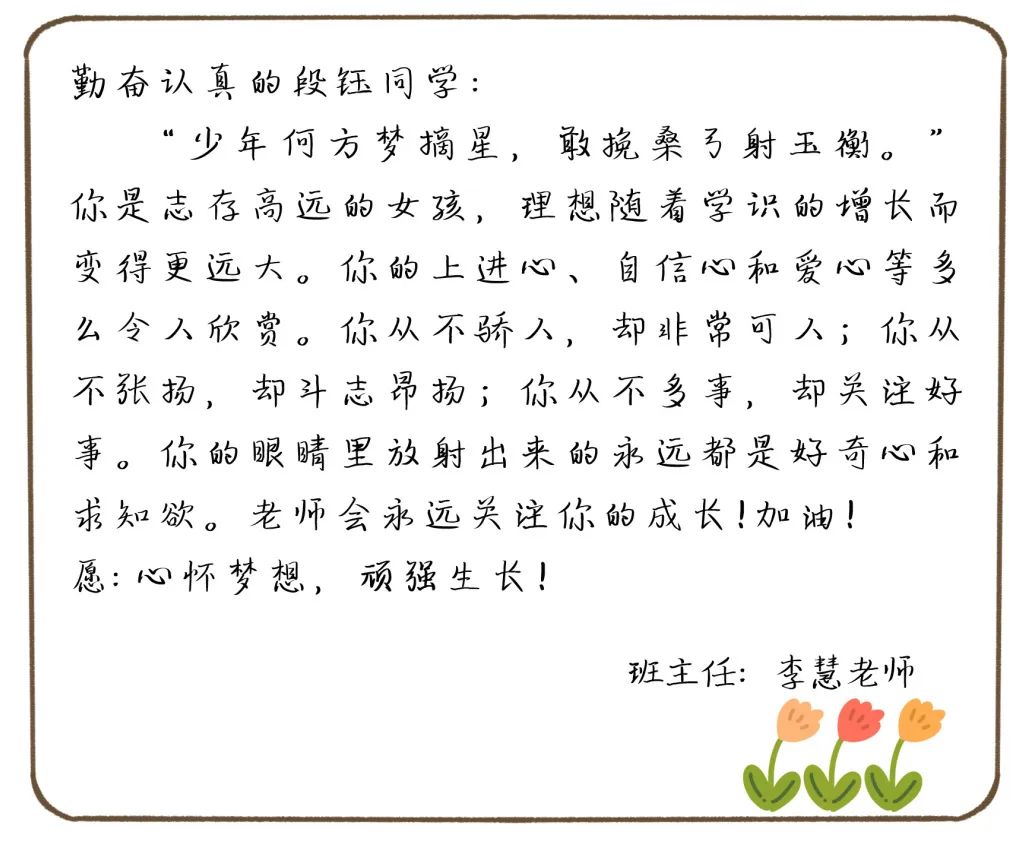 勤奋认真的段钰同学：
“少年何方梦摘星，敢挽桑弓射玉衡。”
你是志存高远的女孩，理想随着学识的增长而
变得更远大。你的上进心、自信心和爱心等多
么令人欣赏。你从不骄人，却非常可人；你从
不张扬，却斗志昂扬；你从不多事，却关注好
事。你的眼睛里放射出来的永远都是好奇心和
求知欲。老师会永远关注你的成长！加油！
愿：心怀梦想，顽强生长！
班主任：李慧老师